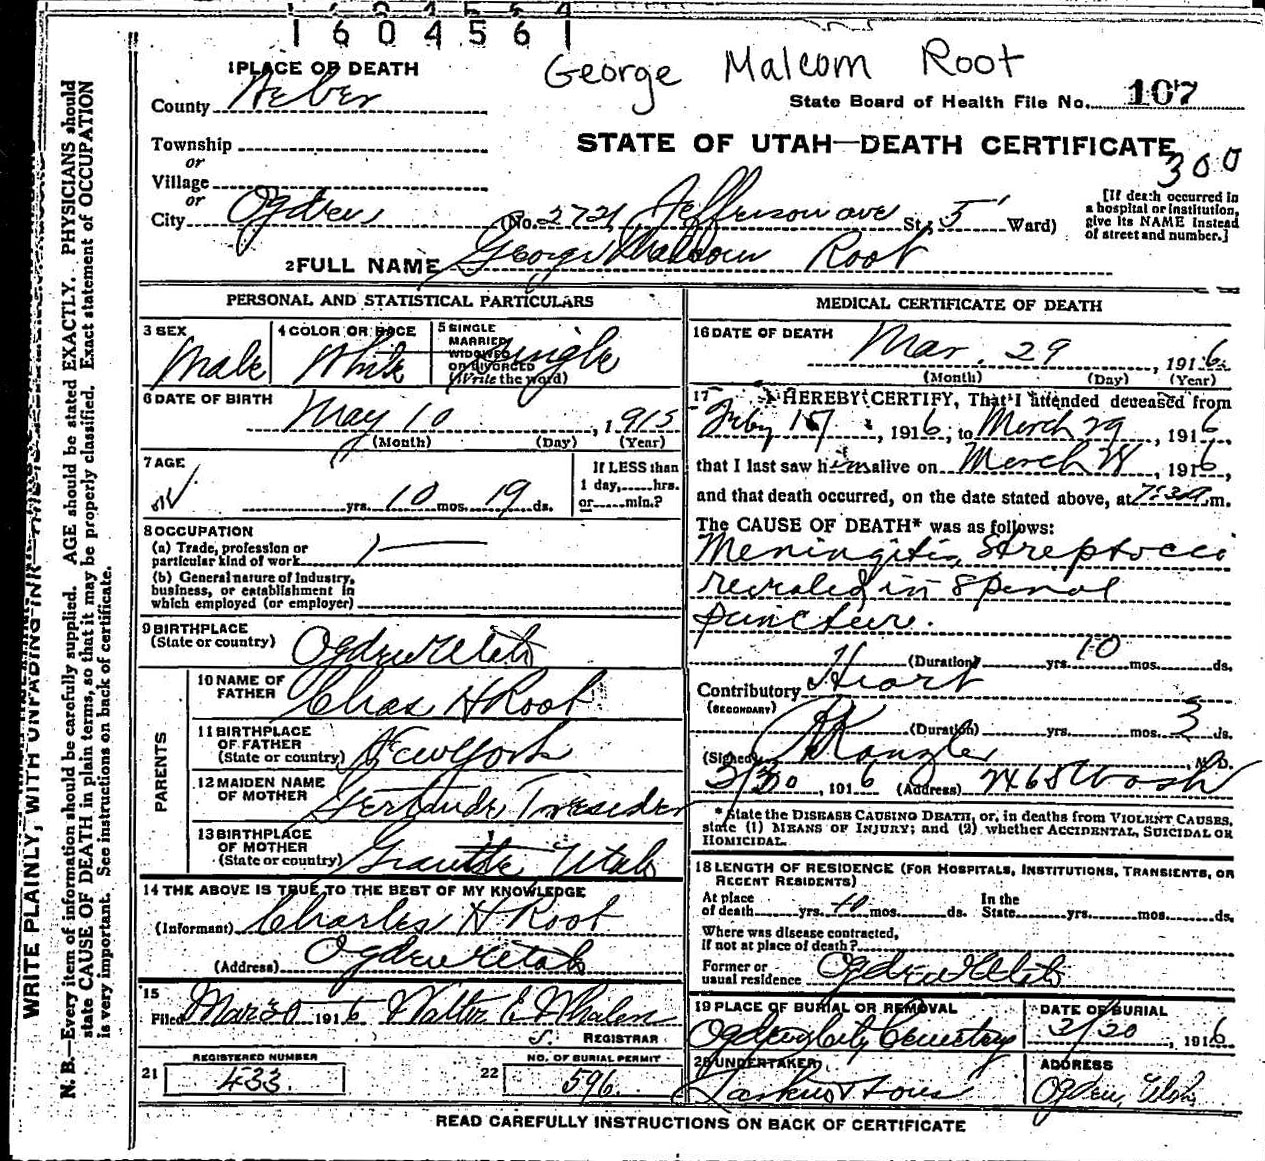 1604561
George Malcom Root
1 PLACE OF DEATH
County Weber
State Board of Health File No. 107
Township
STATE OF UTAH—DEATH CERTIFICATE
300
or
Village
or
City Ogden (No. 2721 Jefferson ave St., 5 Ward)
[If death occurred in
a hospital or institution,
give its NAME instead
of street and number.]
2 FULL NAME George Malcom Root
PERSONAL AND STATISTICAL PARTICULARS
3 SEX Male
4 COLOR OR RACE White
5 SINGLE
MARRIED
WIDOWED
OR DIVORCED
(Write the word) Single
6 DATE OF BIRTH May 10, 1915
(Month) (Day) (Year)
7 AGE
yrs. 10 mos. 19 ds.
If LESS than
1 day, hrs.
or min.?
8 OCCUPATION
(a) Trade, profession or
particular kind of work
(b) General nature of Industry,
business, or establishment in
which employed (or employer)
9 BIRTHPLACE
(State or country) Ogden Utah
PARENTS
10 NAME OF
FATHER Chas H Root
11 BIRTHPLACE
OF FATHER
(State or country) New York
12 MAIDEN NAME
OF MOTHER Gertrude Treseder
13 BIRTHPLACE
OF MOTHER
(State or country) Utah
14 THE ABOVE IS TRUE TO THE BEST OF MY KNOWLEDGE
(Informant) Charles H Root
(Address) Ogden Utah
15
Filed Mar 30 1916 Walter E Whalen
REGISTRAR
REGISTERED NUMBER
21 433
NO. OF BURIAL PERMIT
22 596
MEDICAL CERTIFICATE OF DEATH
16 DATE OF DEATH Mar. 29, 1916
(Month) (Day) (Year)
17 I HEREBY CERTIFY, That I attended deceased from
Feby 15, 1916, to March 29, 1916
that I last saw him alive on March 28, 1916,
and that death occurred, on the date stated above, at 7:30 m.
The CAUSE OF DEATH* was as follows:
Meningitis, Streptocci
revealed in Spenal
puncture.
(Duration) yrs. 10 mos. ds.
Contributory Heart
(SECONDARY)
(Duration) yrs. mos. 3 ds.
(Signed) Kanzler, M.D.
3/30, 1916 (Address) 2468 Wash
* State the DISEASE CAUSING DEATH, or, in deaths from VIOLENT CAUSES,
state (1) MEANS OF INJURY; and (2) whether ACCIDENTAL, SUICIDAL OR
HOMICIDAL.
18 LENGTH OF RESIDENCE (FOR HOSPITALS, INSTITUTIONS, TRANSIENTS, OR
RECENT RESIDENTS)
At place
of death yrs. 10 mos. ds. In the
State yrs. mos. ds.
Where was disease contracted,
if not at place of death?
Former or
usual residence Ogden Utah
19 PLACE OF BURIAL OR REMOVAL
Ogden City Cemetery
DATE OF BURIAL
3/30, 1916
20 UNDERTAKER
Larkin & Sons
ADDRESS
Ogden, Utah
READ CAREFULLY INSTRUCTIONS ON BACK OF CERTIFICATE
WRITE PLAINLY, WITH UNFADING INK
N. B.—Every item of information should be carefully supplied. AGE should be stated EXACTLY. PHYSICIANS should
state CAUSE OF DEATH in plain terms, so that it may be properly classified. Exact statement of OCCUPATION
is very important. See instructions on back of certificate.